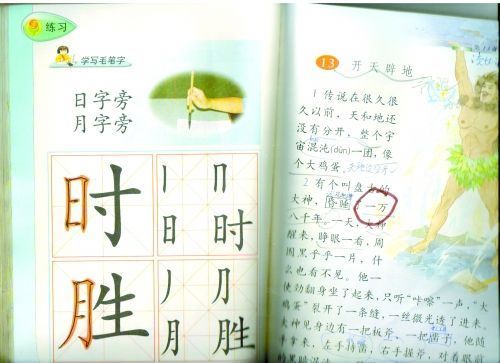 练习
学写毛笔字
日字旁
月字旁
时
丨 冂
日 时
胜
丿 刀
月 胜
13 开天辟地
1 传说在很久很
久以前，天和地还
没有分开，整个宇
宙混沌(dùn)一团，像
个大鸡蛋。
2 有个叫盘古的
大神，昏睡了一万
八千年。一天，大神
醒来，睁眼一看，周
围黑乎乎一片，什
么也看不见。他一
使劲翻身坐了起来，只听“咔嚓”一声，“大
鸡蛋”裂开了一条缝，一丝微光透了进来。
大神见身边有一把板斧，一把凿子，他随
手拿来，左手持凿，右手握斧，对着眼前
的黑暗混沌